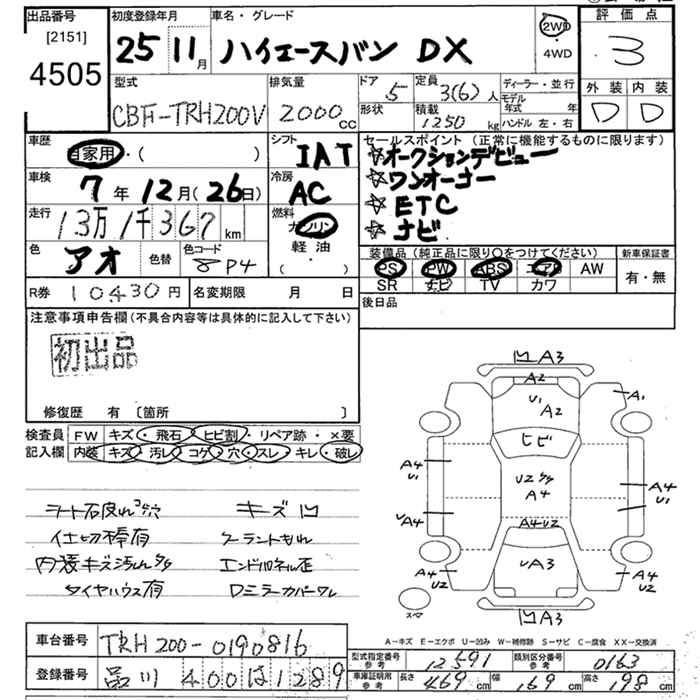 出品番号
[2151]
4505
初度登録年月
25 11月
車名・グレード
ハイエースバン DX
2WD
4WD
評価点
3
外装 内装
D D
型式
CBF-TRH200V
排気量
2000cc
ドア 5
形状
定員 3(6)人
積載 1250kg
ディーラー・並行
モデル年式 年
ハンドル 左・右
車歴
自家用・( )
シフト
IAT
車検
7年12月(26日)
冷房
AC
走行
13万1千367km
燃料
ガソリン
軽油
・( )
色 アオ
色替
色コード 8P4
セールスポイント(正常に機能するものに限ります)
☆オークションデビュー
☆ワンオーナー
☆ETC
☆ナビ
装備品(純正品に限り〇をつけてください)
PS PW ABS エアB AW
SR ナビ TV カワ
新車保証書
有・無
R券 10430円
名変期限 月 日
後日品
注意事項申告欄(不具合内容等は具体的に記入して下さい)
初出品
修復歴 有 〔箇所 〕
検査員記入欄
FW キズ・飛石・ヒビ割・リペア跡・×要
内装 キズ・汚レ・コゲ・穴・スレ・キレ・破レ
シート 穴
キズ凹
仕切棒有
クーラントもれ
内装キズ汚れ
エンドパネル歪
タイヤハウス有
Dミラーカバーワレ
凹A3
A2
U1
A2
A1
ヒビ
A4
U1
U2
A4
A4
U1
A4
A4U2
A4
U2
UA3
A4
U2
スペア
凹A3
A-キズ E-エクボ U-凹み W-補修跡 S-サビ C-腐食 XX-交換済
車台番号 TRH200-0190816
登録番号 品川 400 は 1289
型式指定番号 参考 12591
類別区分番号 参考 0163
車庫証明用 参考 長さ 469cm 幅 169cm 高さ 198cm